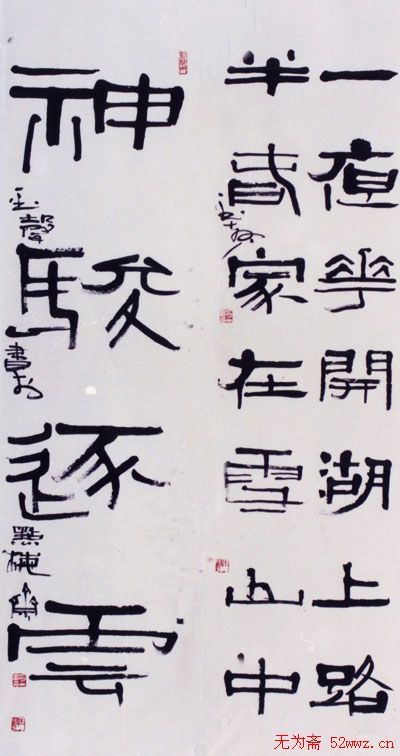 一夜華開湖上路
半春家在雪山中
神駿逐雲
聲書於
无为斋 52wwz.cn